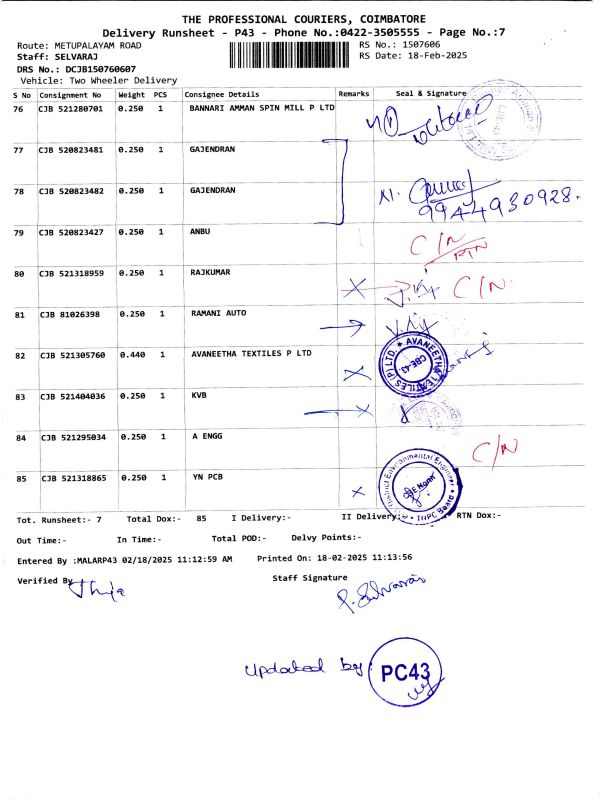 THE PROFESSIONAL COURIERS, COIMBATORE
Delivery Runsheet - P43 - Phone No.:0422-3505555 - Page No.:7
Route: METUPALAYAM ROAD RS No.: 1507606
Staff: SELVARAJ RS Date: 18-Feb-2025
DRS No.: DCJB150760607
Vehicle: Two Wheeler Delivery
S No Consignment No Weight PCS Consignee Details Remarks Seal & Signature
76 CJB 521280701 0.250 1 BANNARI AMMAN SPIN MILL P LTD
77 CJB 520823481 0.250 1 GAJENDRAN
78 CJB 520823482 0.250 1 GAJENDRAN
9944930928.
79 CJB 520823427 0.250 1 ANBU C/N
RTN
80 CJB 521318959 0.250 1 RAJKUMAR C/N
81 CJB 81026398 0.250 1 RAMANI AUTO
82 CJB 521305760 0.440 1 AVANEETHA TEXTILES P LTD
AVANEETHA TEXTILES (P) LTD. CBE-43.
83 CJB 521404036 0.250 1 KVB
84 CJB 521295034 0.250 1 A ENGG C/N
85 CJB 521318865 0.250 1 YN PCB
District Environmental Engineer TNPC Board
Tot. Runsheet:- 7 Total Dox:- 85 I Delivery:- II Delivery:- RTN Dox:-
Out Time:- In Time:- Total POD:- Delvy Points:-
Entered By :MALARP43 02/18/2025 11:12:59 AM Printed On: 18-02-2025 11:13:56
Verified By Staff Signature
P. Selvaraj
Updated by: PC43